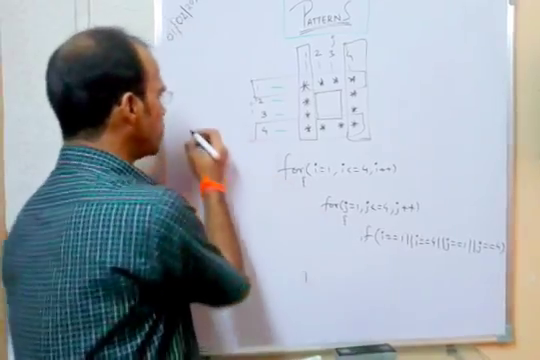 01/02/20
PATTERNS
j
1 2 3 4
1 * * * *
2 * *
3 * *
4 * * * *
for(i=1, i<=4, i++)
{
for(j=1, j<=4, j++)
{
if(i==1||i==4||j==1||j==4)